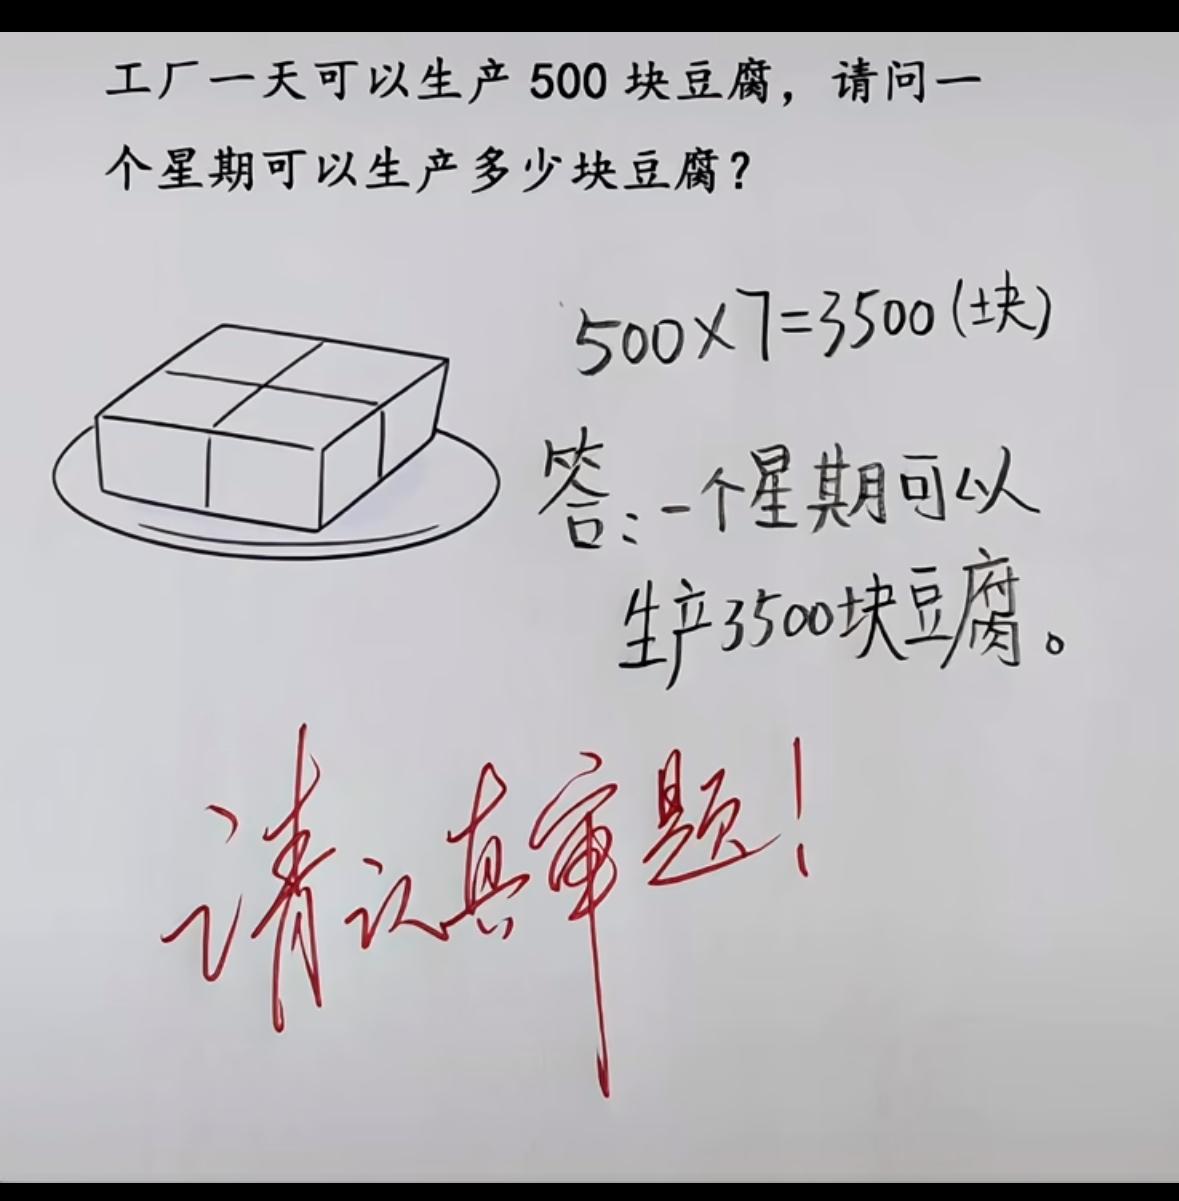 工厂一天可以生产 500 块豆腐，请问一
个星期可以生产多少块豆腐？
500×7=3500(块)
答：一个星期可以
生产3500块豆腐。
请认真审题！